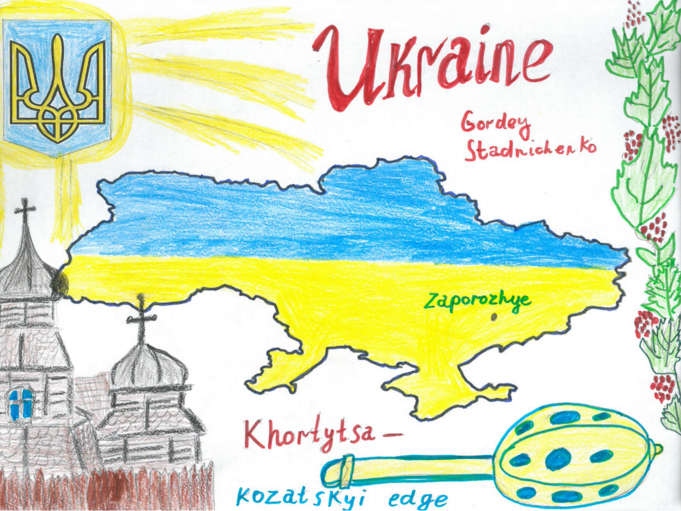 Ukraine
Gordey
Stadnichenko
Zaporozhye
Khortytsa –
Kozatskyi edge